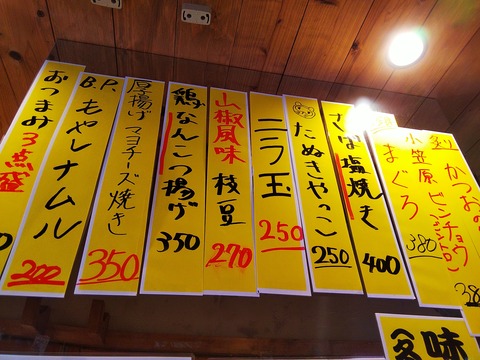 かつお
小笠原
ビンチョウ
(ビントロ)
まぐろ
380
さば塩焼き
400
たぬきやっこ
250
ニラ玉
250
山椒風味 枝豆
270
鶏なんこつ揚げ
350
厚揚げマヨチーズ焼き
350
B.P.もやしナムル
200
おつまみ3点盛
味